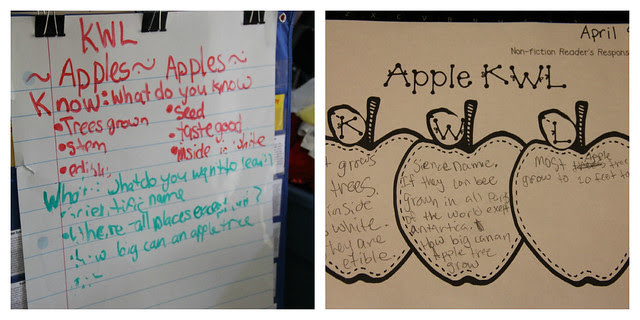 KWL
~ Apples ~ Apples ~
Know: What do you know
• Trees grown
• seed
• stem
• taste good
• edible
• inside is white
What: what do you want to learn?
name
• Where-all places except
big can an apple tree
April
Non-fiction Reader's Respons
Apple KWL
K
W
L
grows
trees.
inside
white.
they are
etible
Sience name.
If they can bee
grown in all Parts
of the world exept
antartica.
How big can an
Apple tree
grow
most Apple trees
grow to 20 feet to